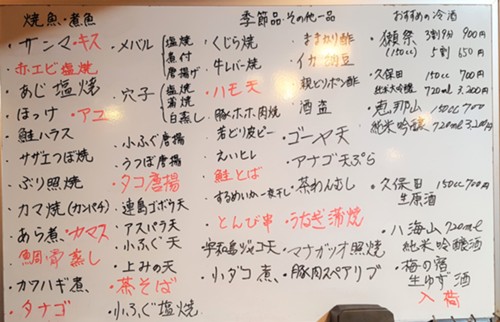 焼魚・煮魚
・サンマ・キス
・赤エビ塩焼
・あじ塩焼
・ほっけ・アユ
・鮭ハラス
・サザエつぼ焼
・ぶり照焼
・カマ焼(カンパチ)
・あら煮・カマス
・鯛骨蒸し
・カワハギ煮
・タナゴ
・メバル 塩焼 煮付 唐揚げ
・穴子 塩焼 蒲焼 白蒸し
・小ふぐ唐揚
・うつぼ唐揚
・タコ唐揚
・連島ゴボウ天
・アスパラ天
・小ふぐ天
・上みの天
・茶そば
・小ふぐ塩焼
季節品・その他一品
・くじら焼
・牛レバー焼
・ハモ天
・豚ホホ肉焼
・若どり皮ピー
・えいヒレ
・鮭とば
・するめいか一夜干し
・とんび串
・宇和島ジャコ天
・小ダコ煮
・ままかり酢
・イカ納豆
・親どりポン酢
・酒盗
・ゴーヤ天
・アナゴ天ぷら
・茶わんむし
・うなぎ蒲焼
・マナガツオ照焼
・豚肉スペアリブ
おすすめの冷酒
・獺祭 3割9分 900円
(150cc) 5割 650円
・久保田 150cc 700円
純米大吟醸 720ml 3,200円
・恵那山 150cc 700
純米吟醸 720ml 3,200円
・久保田 150cc 700円
生原酒
・八海山 720ml
純米吟醸酒
・梅の宿
生ゆず酒
入荷